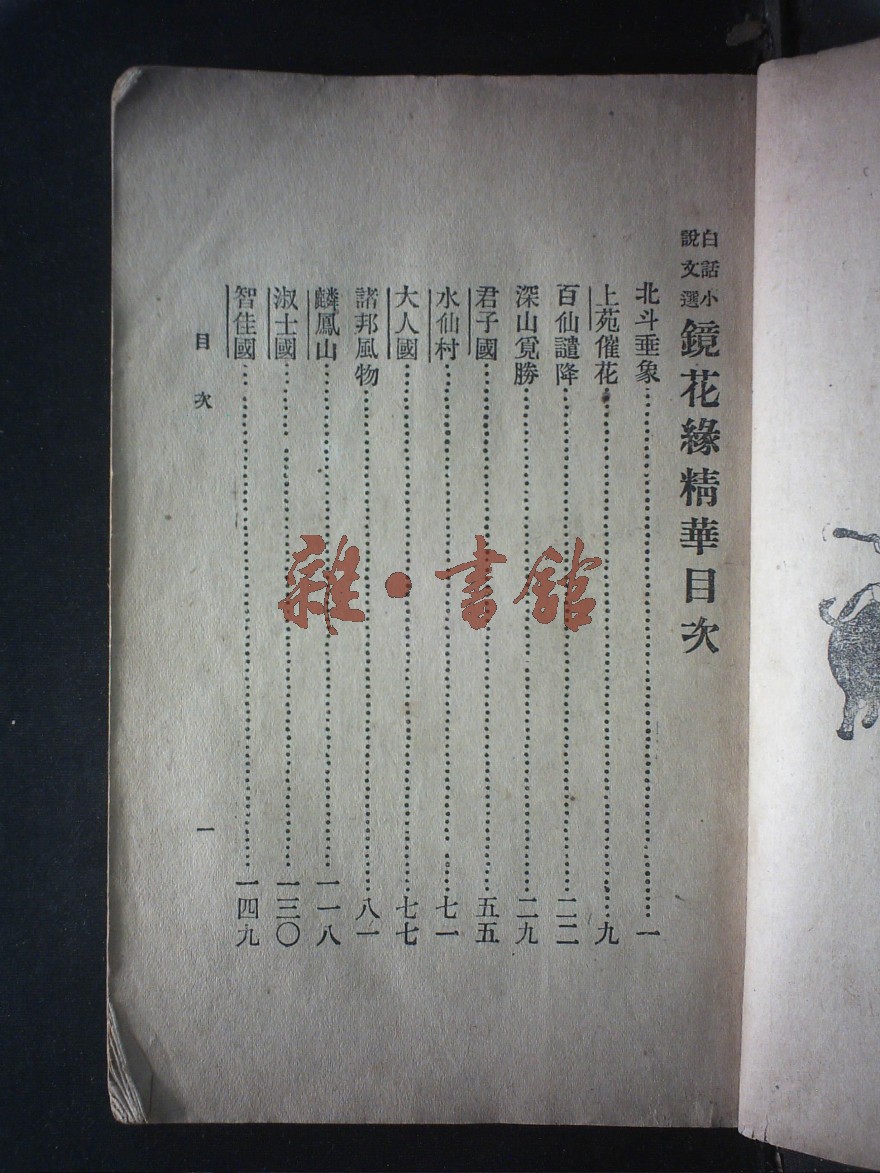 白話小
說文選
鏡花緣精華目次
北斗垂象……一
上苑催花……九
百仙譴降……二二
深山覓勝……二九
君子國……五五
水仙村……七一
大人國……七七
諸邦風物……八一
麟鳳山……一一八
淑士國……一三〇
智佳國……一四九
目次 一
雜·書館